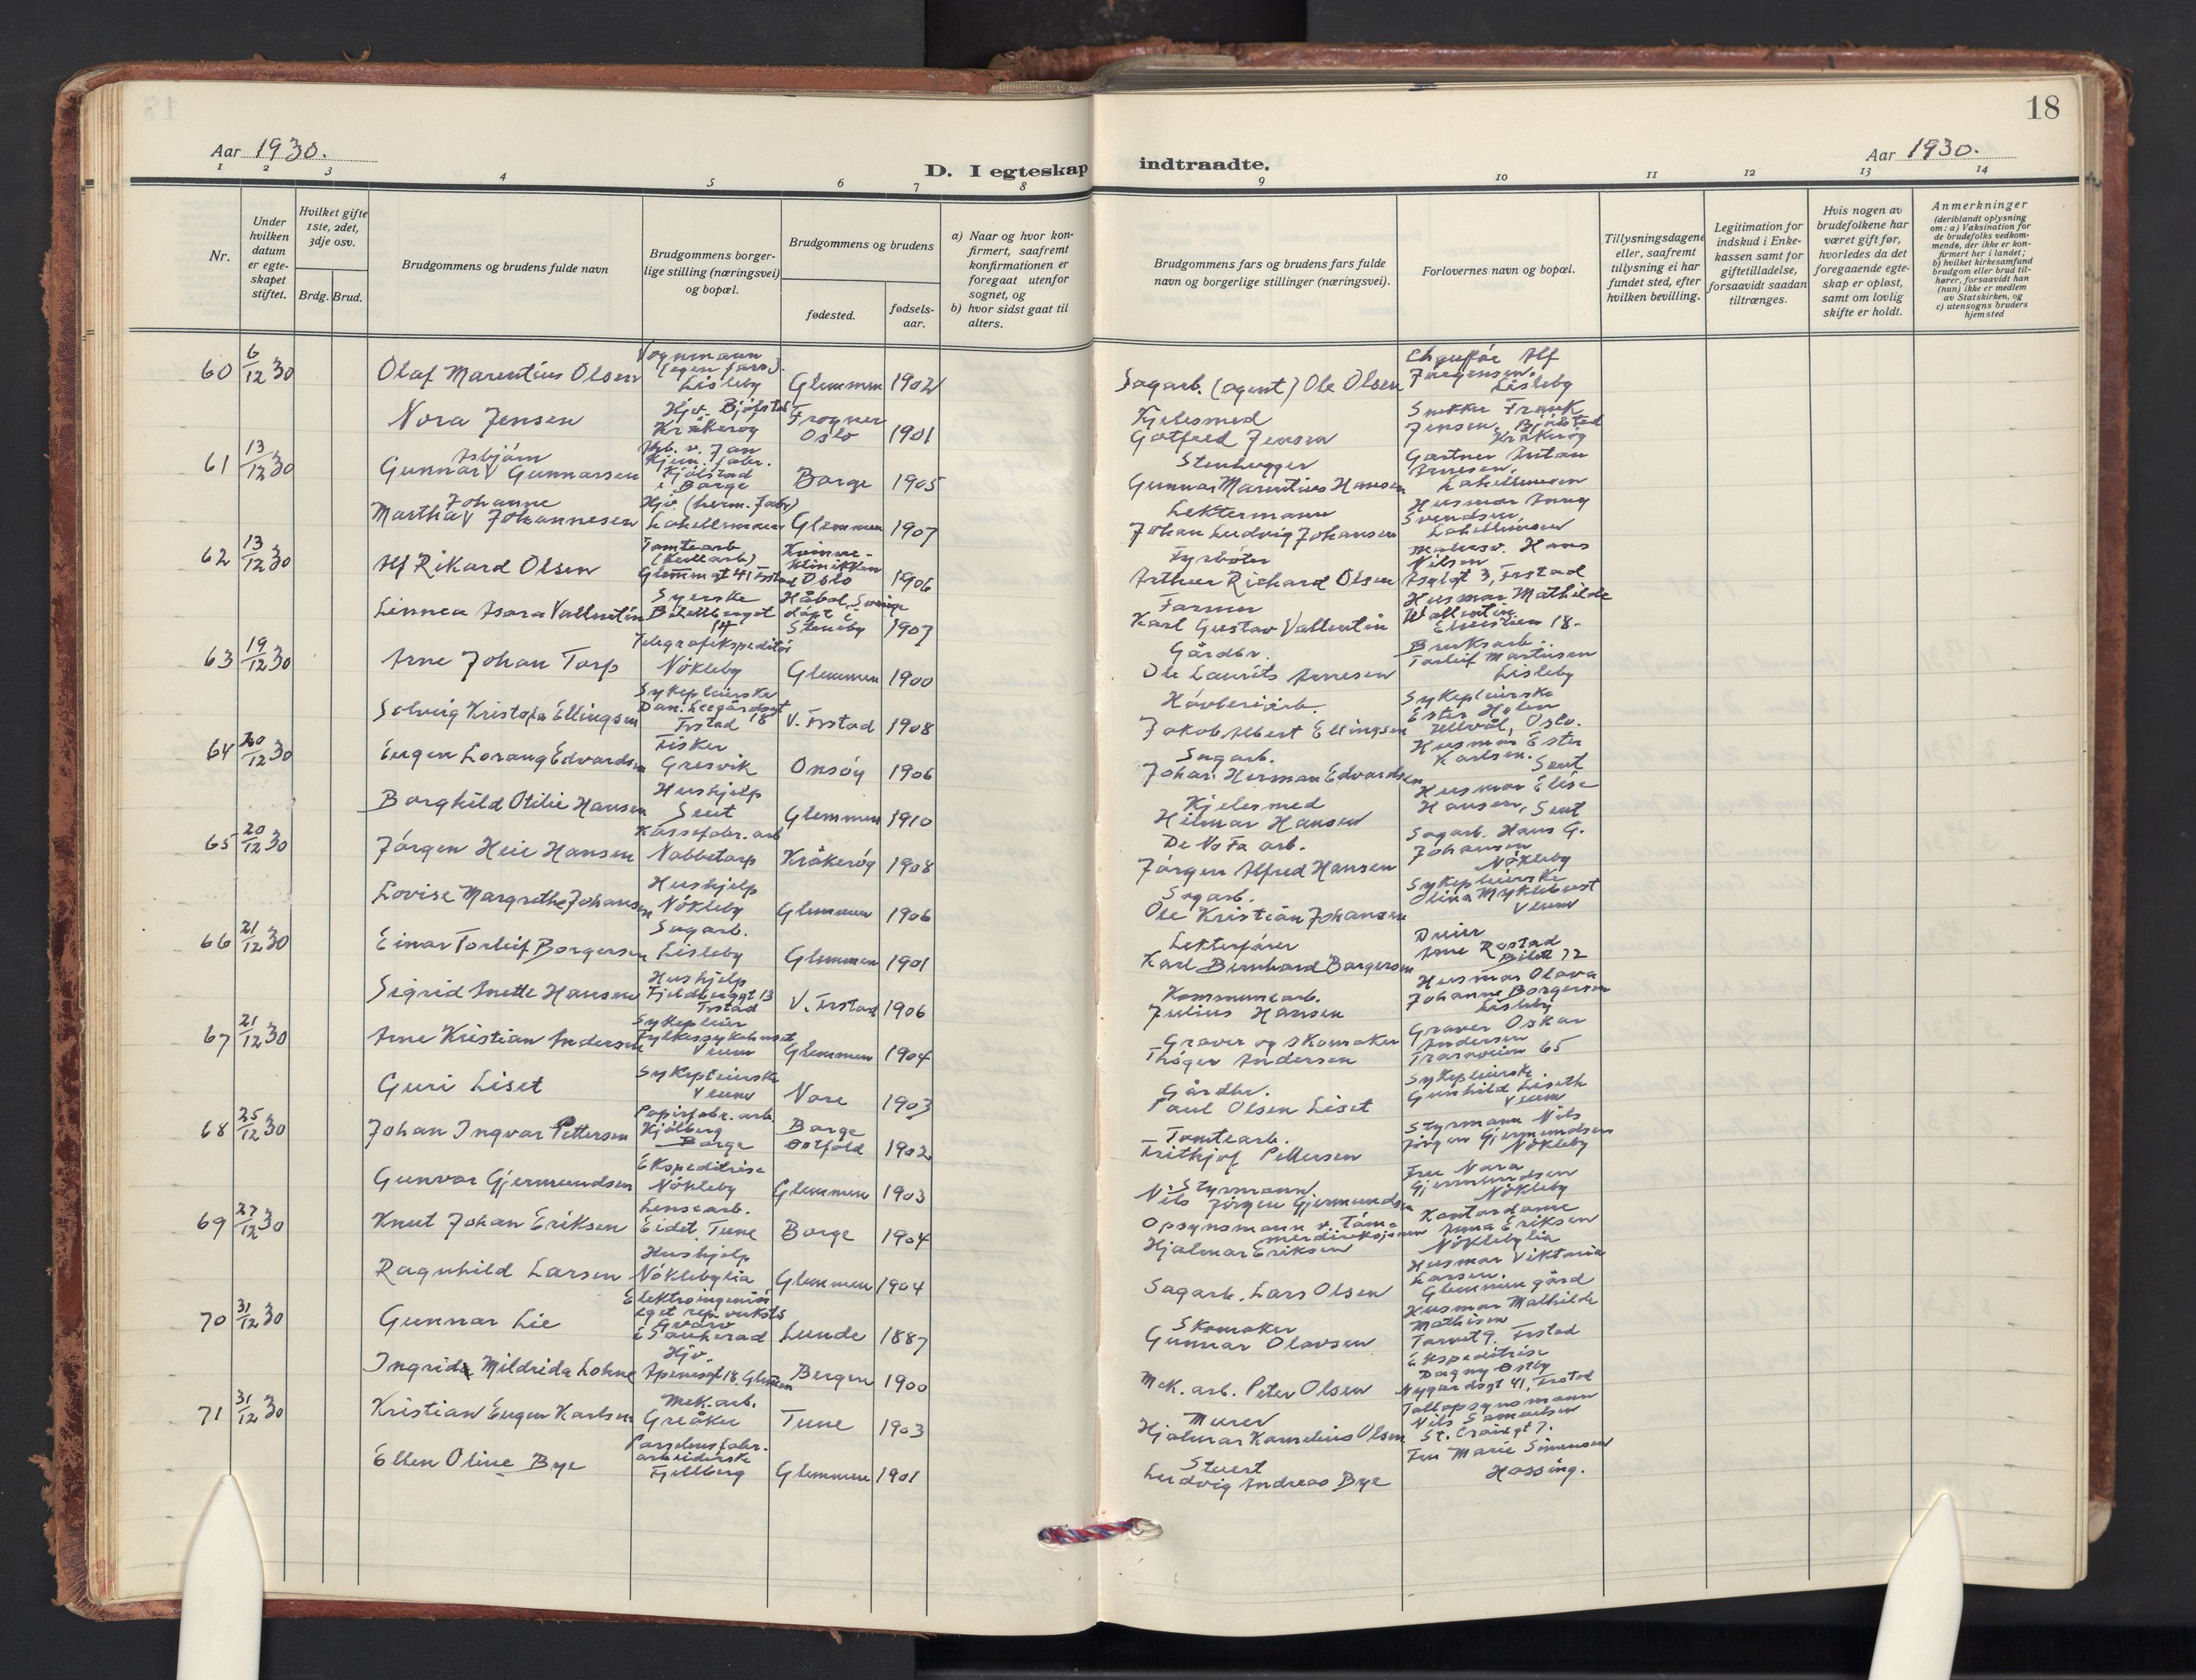 18
Aar 1930.
Aar 1930.
D. I egteskap indtraadte.
1 2 3 4 5 6 7 8 9 10 11 12 13 14
Nr.
Under hvilken datum er egteskapet stiftet.
Hvilket gifte 1ste, 2det, 3dje osv.
Brdg. Brud.
Brudgommens og brudens fulde navn
Brudgommens borgerlige stilling (næringsvei) og bopæl.
Brudgommens og brudens
fødested.
fødselsaar.
a) Naar og hvor konfirmert, saafremt konfirmationen er foregaat utenfor sognet, og
b) hvor sidst gaat til alters.
Brudgommens fars og brudens fars fulde navn og borgerlige stillinger (næringsvei).
Forlovernes navn og bopæl.
Tillysningsdagene eller, saafremt tillysning ei har fundet sted, efter hvilken bevilling.
Legitimation for indskud i Enkekassen samt for giftetilladelse, forsaavidt saadan tiltrænges.
Hvis nogen av brudefolkene har været gift før, hvorledes da det foregaaende egteskap er opløst, samt om lovlig skifte er holdt.
Anmerkninger
(deriblandt oplysning om: a) Vaksination for de brudefolks vedkommende, der ikke er konfirmert her i landet; b) hvilket kirkesamfund brudgom eller brud tilhører, forsaavidt han (hun) ikke er medlem av Statskirken, og c) utensogns bruders hjemsted
60 6/12 30 Olaf Marentius Olsen Vognmann (egen Lisleby Glemmen 1902 Sagarb. (agent) Ole Olsen Chauffør Alf Jørgensen. Lisleby
Nora Jensen Hjv. Bjølstad Kråkerøy Frogner Oslo 1901 Kjelesmed Gotfred Jensen Snekker Frank Jensen, Bjølstad Kråkerøy
61 13/12 30 Gunnar Asbjørn Gunnarsen Kjølstad i Borge Borge 1905 Stenhugger Gunnar Marentius Hansen Gartner Anton Arnesen, Lahellmoen
Martha Johanne Johannesen Hjv. (herm. fabr) Lahellemoen Glemmen 1907 Lektermann Johan Ludvig Johansen Husmor Svendsen, Lahellmoen
62 13/12 30 Alf Rikard Olsen Tomtearb Glemmgt 41 Frstad Kvinneklinikken Oslo 1906 Fyrbøter Arthur Richard Olsen Hans Nilsen 3, Frstad
Linnea Isora Vallentin Syerske 14 Håbol, Sverige døpt i Steneby 1907 Farmer Karl Gustav Vallentin Husmor Mathilde Wallentin 18.
63 19/12 30 Arne Johan Torp Telegrafekspeditør Nökleby Glemmen 1900 Gårdbr. Ole Laurits Arnesen Bruksarb. Torleif Martinsen Lisleby
Solveig Kristofa Ellingsen Sykepleierske Dan. Leegårdsgt 18 Frstad V. Frstad 1908 Høvleriarb. Jakob Albert Ellingsen Sykepleierske Ester Holen Ullevål, Oslo.
64 20/12 30 Eugen Lorang Edvardsen Fisker Gresvik Onsøy 1906 Sagarb. Johan Herman Edvardsen Husmor Ester Karlsen. Seut
Borghild Otilie Hansen Hushjelp Seut Glemmen 1910 Kjelesmed Hilmar Hansen Husmor Elise Hansen, Seut
65 20/12 30 Jørgen Heie Hansen Kassefabr. arb Nabbetorp Kråkerøy 1908 De No Fa arb. Jørgen Alfred Hansen Sagarb. Hans G. Johansen Nökleby
Lovise Margrethe Johansen Hushjelp Nökleby Glemmen 1906 Sagarb. Ole Kristian Johansen Sykepleierske Olina Myklebust Veum
66 21/12 30 Einar Torleif Borgersen Sagarb. Lisleby Glemmen 1901 Lekterfører Karl Bernhard Borgersen Dreier Arne Rostad
Sigrid Anette Hansen Hushjelp Fjeldberggt 13 Frstad V. Frstad 1906 Kommunearb. Julius Hansen Husmor Olava Johanne Borgersen Lisleby
67 21/12 30 Arne Kristian Andersen Sykepleier Fylkessykehuset Veum Glemmen 1904 Graver og skomaker Thøger Andersen Graver Oskar Andersen Traraveien 65
Guri Liset Sykepleierske Veum Nore 1903 Gårdbr. Paul Olsen Liset Sykepleierske Gunhild Liseth Veum
68 25/12 30 Johan Ingvar Pettersen Papirfabr. arb. Kjølberg Borge Borge Østfold 1902 Tomtearb. Frithjof Pettersen Styrmann Nils Jørgen Gjermundsen Nökleby
Gunvor Gjermundsen Ekspeditrise Nökleby Glemmen 1903 Styrmann Nils Jørgen Gjermundsen Fru Nora Gjermundsen Nökleby
69 27/12 30 Knut Johan Eriksen Lensearb. Eidet, Tune Borge 1904 Opsynsmann v. tømmerdireksjonen Hjalmar Eriksen Kontordame Anna Eriksen Nöklebylia
Ragnhild Larsen Hushjelp Nöklebylia Glemmen 1904 Sagarb. Lars Olsen Husmor Viktoria Larsen. Glemmen gård
70 31/12 30 Gunnar Lie Elektroingeniør eget rep. verksted Gvarv i Sauherad Lunde 1887 Skomaker Gunnar Olavsen Husmor Mathilde Mathisen Torvet 9. Frstad
Ingrid Mildrida Lohne Hjv. 18, Glemmen Bergen 1900 Mek. arb. Peter Olsen Ekspeditrise Dagny Østby Nygårdsgt 41, Frstad
71 31/12 30 Kristian Eugen Karlsen Mek. arb. Greåker Tune 1903 Murer Hjalmar Kornelius Olsen Tollopsynsmann Nils Samuelsen St. Croixgt 7.
Ellen Oline Bye Porselensfabr. arbeiderske Fjellberg Glemmen 1901 Stuert Ludvig Andreas Bye Fru Marie Simensen Hassing.